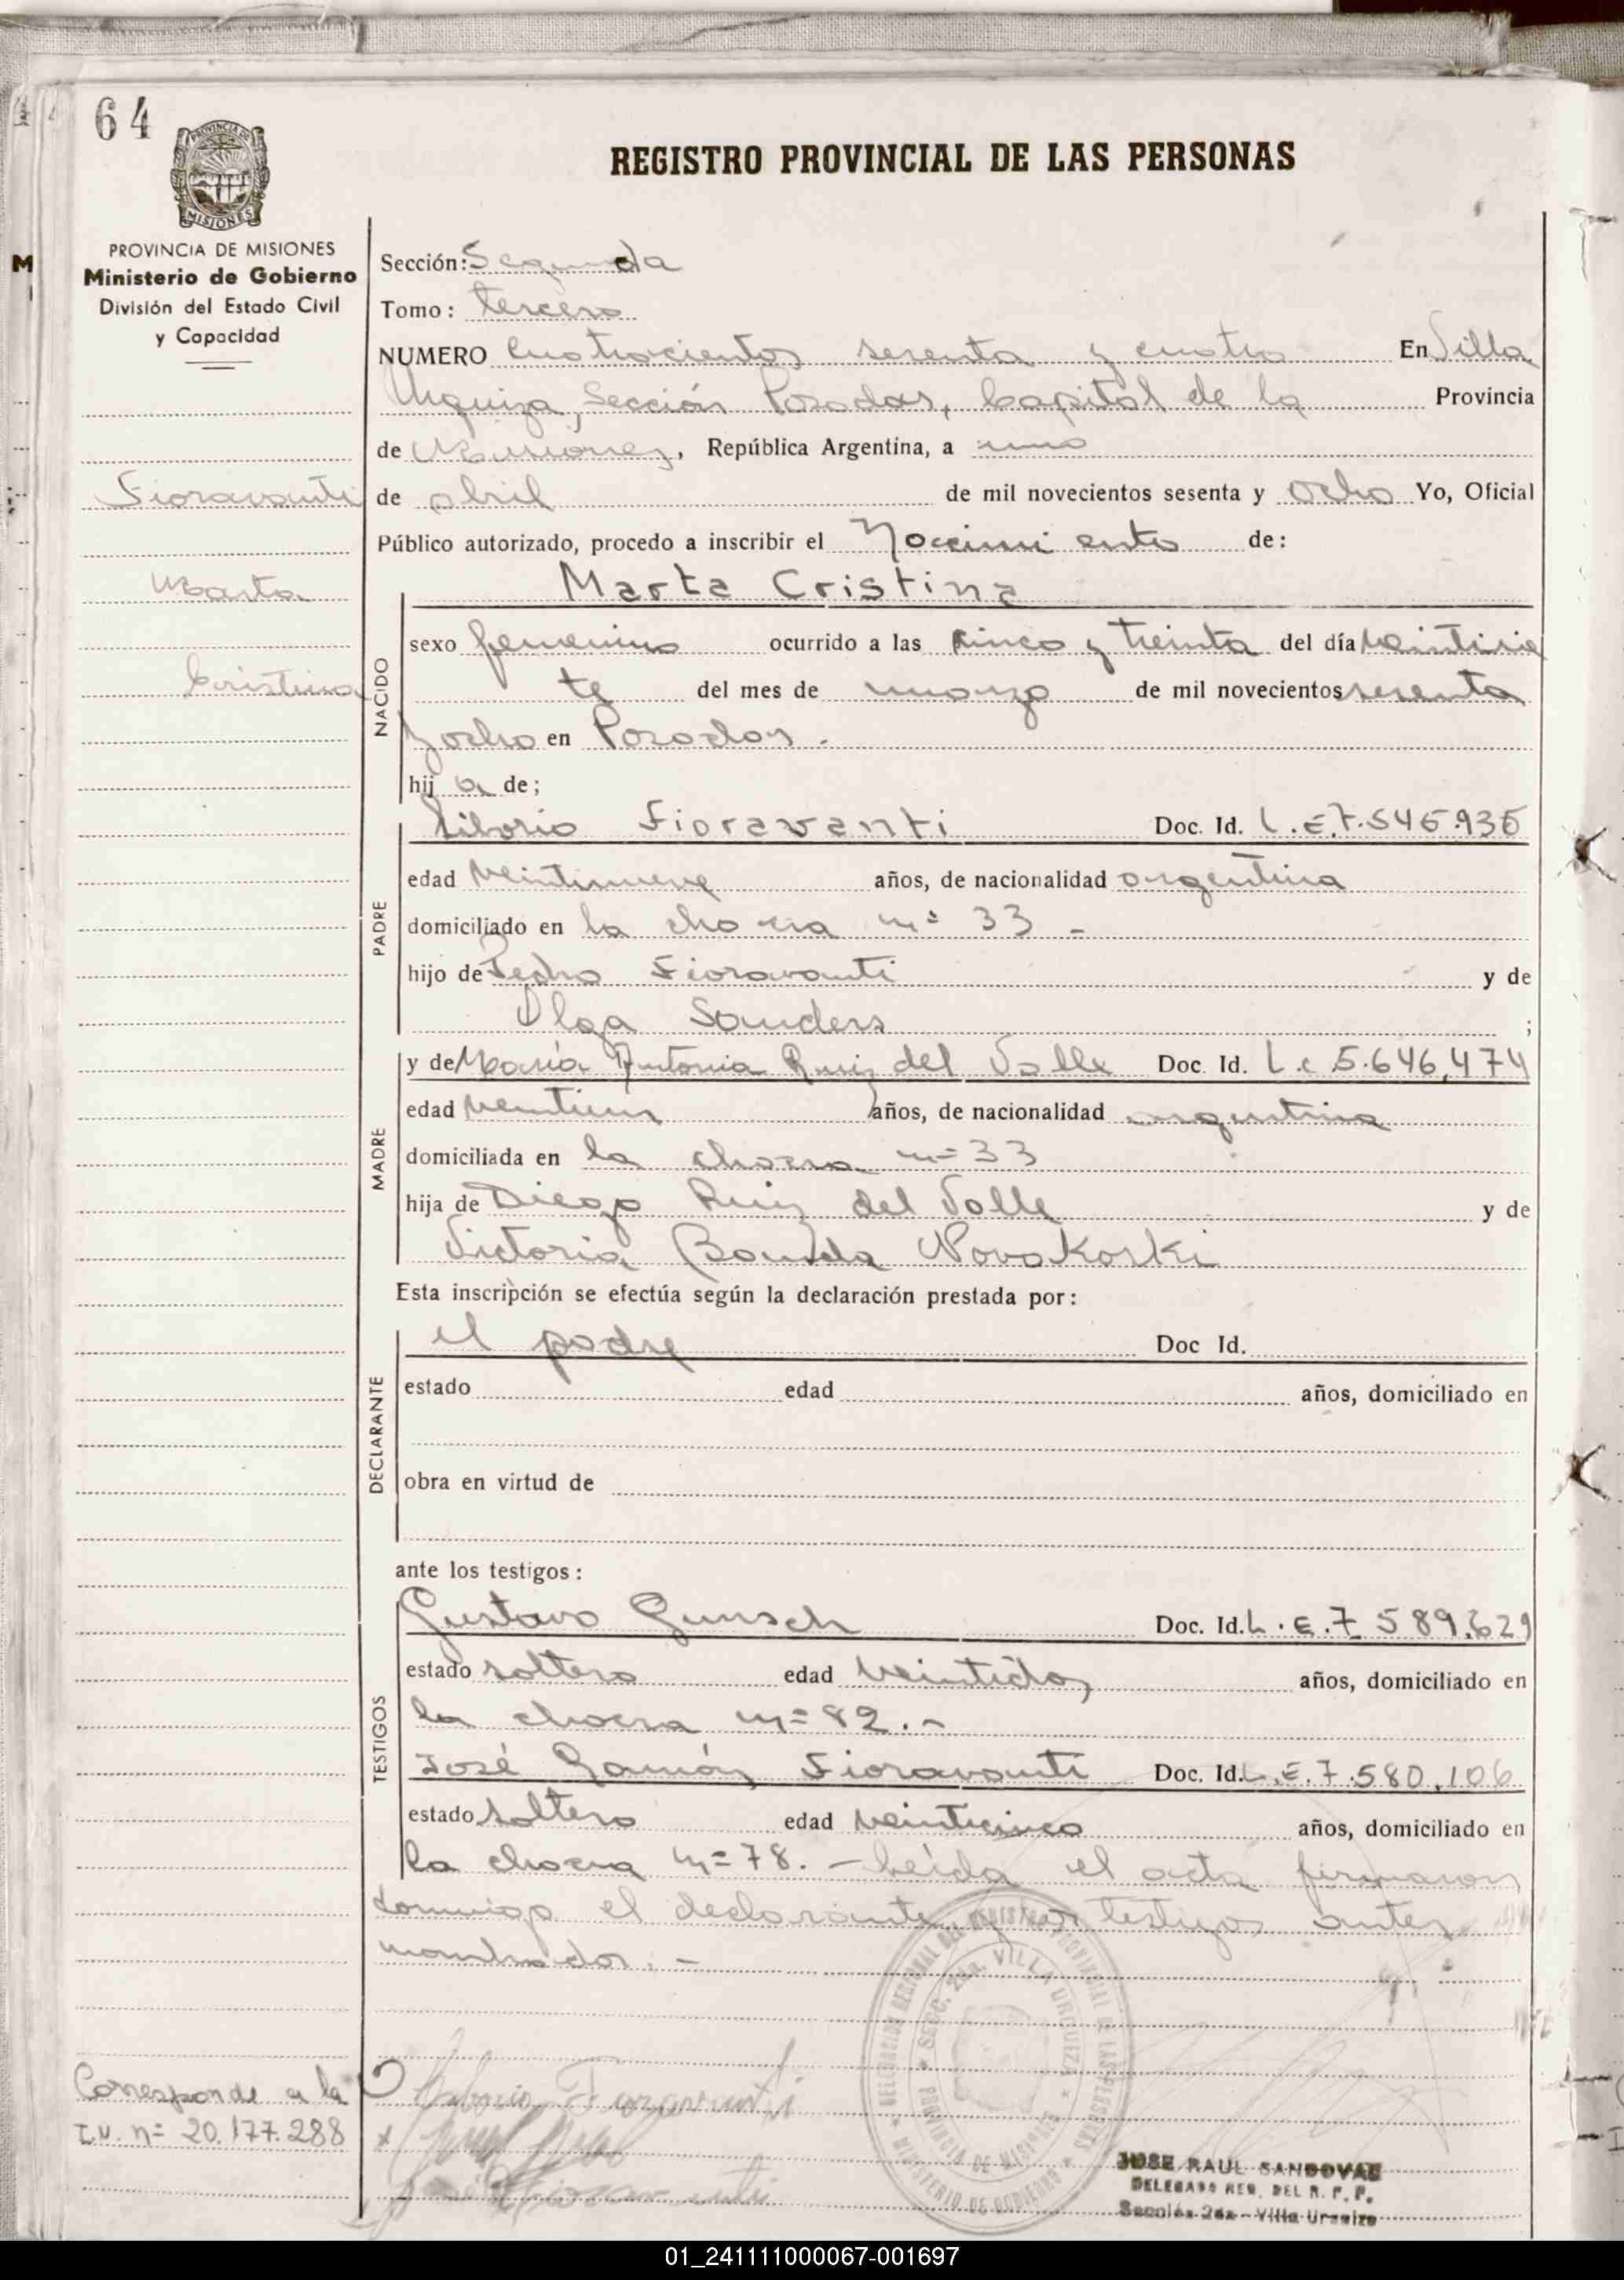 64
REGISTRO PROVINCIAL DE LAS PERSONAS
PROVINCIA DE MISIONES
Ministerio de Gobierno
División del Estado Civil
y Capacidad
Fioravanti
Marta
Cristina
Sección: Segunda
Tomo: tercero
NUMERO Cuatrocientos sesenta y cuatro En Villa
Urquiza, Sección Posadas, Capital de la Provincia
de Misiones, República Argentina, a uno
de abril de mil novecientos sesenta y ocho Yo, Oficial
Público autorizado, procedo a inscribir el Nacimiento de:
Marta Cristina
NACIDO
sexo femenino ocurrido a las cinco y treinta del día veintisie
te del mes de marzo de mil novecientos sesenta
y ocho en Posadas.
hij a de;
PADRE
Liborio Fioravanti Doc. Id. L.E.7.545.935
edad veintinueve años, de nacionalidad argentina
domiciliado en la chacra nº 33 -
hijo de Pedro Fioravanti y de
Olga Sanders ;
MADRE
y de María Antonia Ruiz del Valle Doc. Id. L.c 5.646,474
edad años, de nacionalidad argentina
domiciliada en la chacra nº 33
hija de Diego Ruiz del Valle y de
Victoria Novakoski
Esta inscripción se efectúa según la declaración prestada por:
DECLARANTE
el padre Doc Id.
estado edad años, domiciliado en
obra en virtud de
ante los testigos:
TESTIGOS
Gustavo Gunsch Doc. Id. L.E.7 589.629
estado soltero edad veintidos años, domiciliado en
la chacra nº 82.-
José Ramón Fioravanti Doc. Id. L.E.7.580.106
estado soltero edad veinticinco años, domiciliado en
la chacra nº 78. - Leída el acta firmaron
conmigo el declarante y los testigos antes
nombrados. -
Corresponde a la
I.U. nº 20.177.288
Liborio Fioravanti
José R Fioravanti
DELEGACION REGIONAL DEL REGISTRO PROVINCIAL DE LAS PERSONAS
MINISTERIO DE GOBIERNO
SECC. 2da. VILLA URQUIZA
PROVINCIA DE MISIONES
JOSE RAUL SANDOVAL
DELEGADO REG. DEL R. P. P.
Sección 2da - Villa Urquiza
01_241111000067-001697